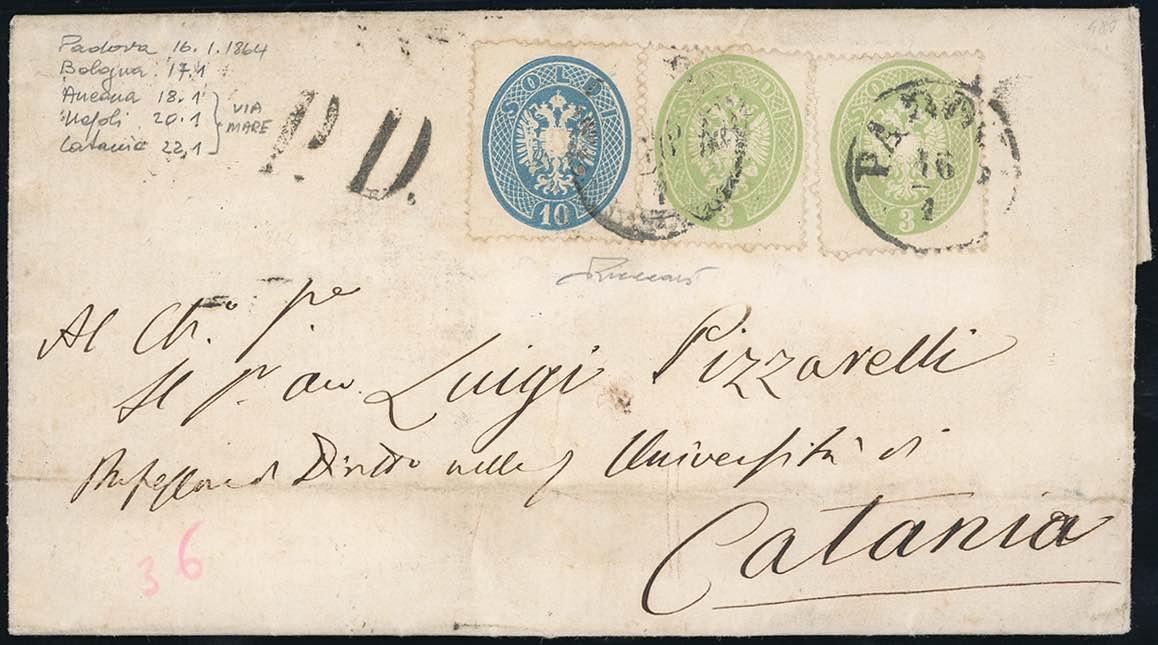 Padova 16.1.1864
Bologna 17.1
Ancona 18.1
Napoli 20.1
Catania 22.1
VIA MARE
P.D.
SOLDI 10
SOLDI 3
SOLDI 3
PADOVA
16
1
Al Ch.º
Luigi Pizzarelli
Professore di Diritto nella Università di
Catania
36